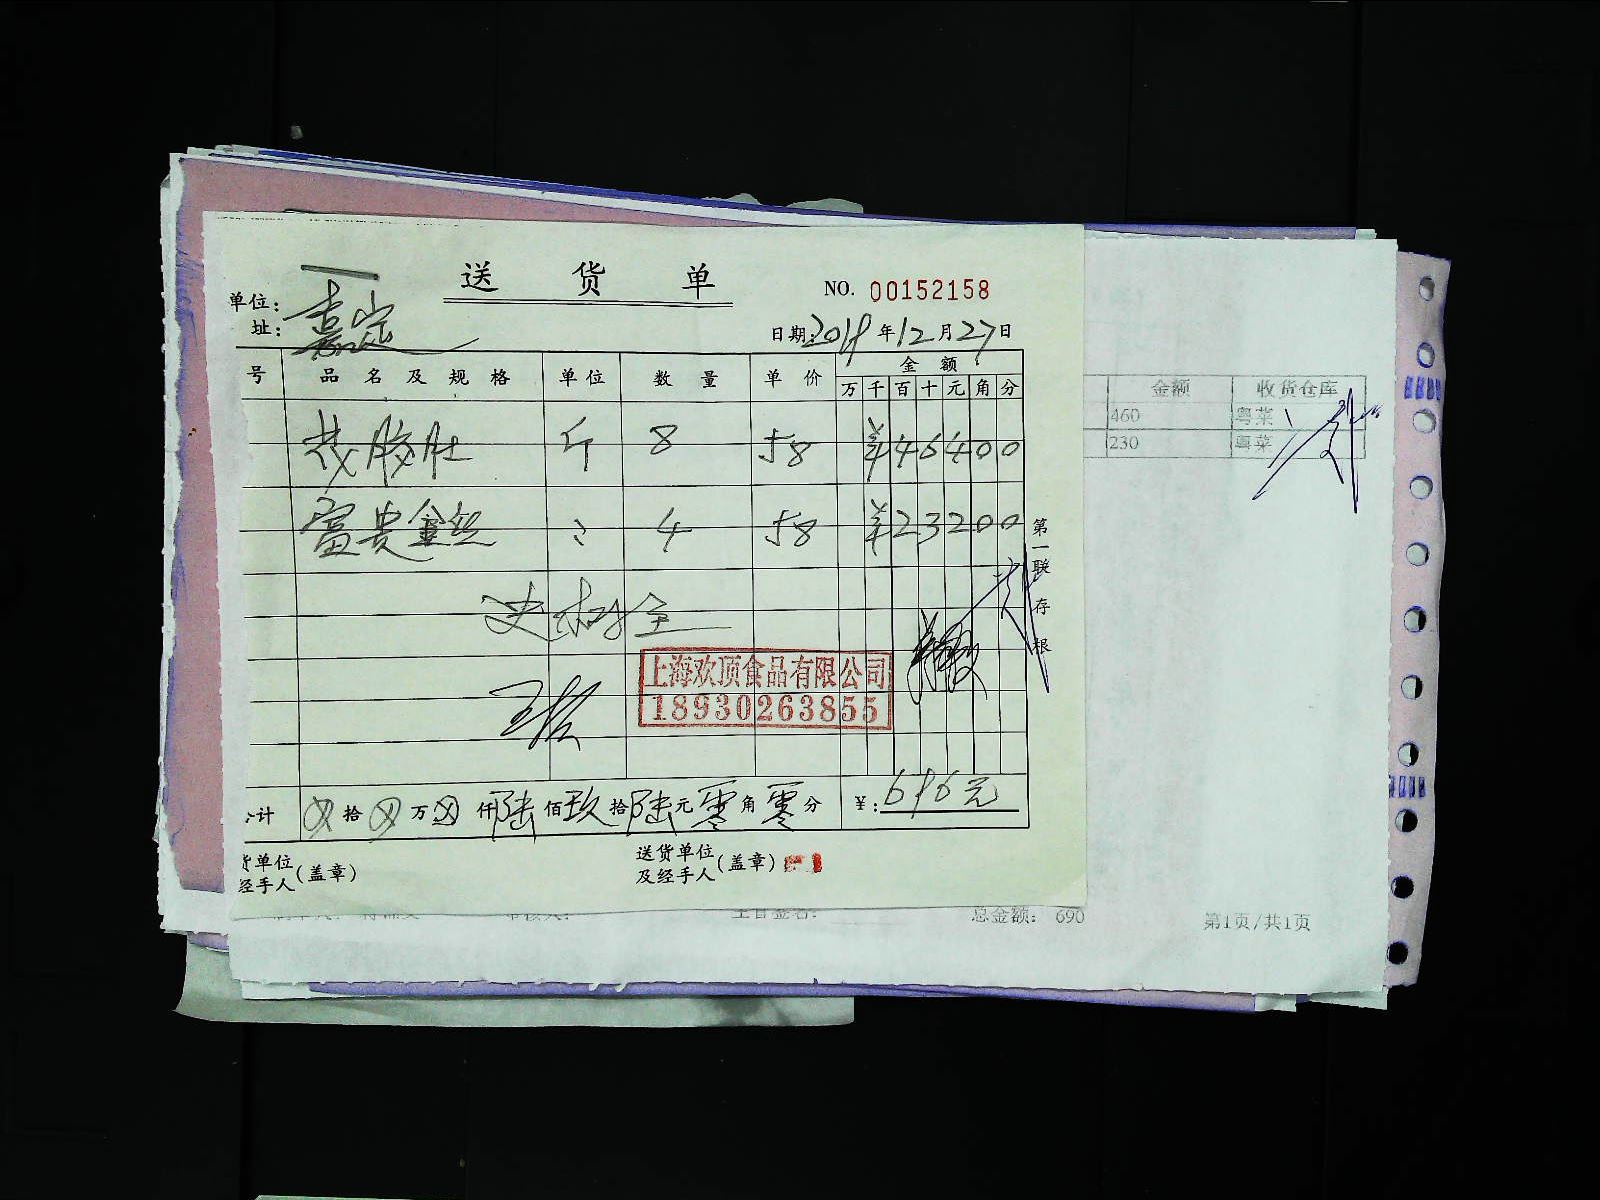 送 货 单
NO. 00152158
单位: 嘉定
址:
日期: 2019 年 12 月 27 日
号 品 名 及 规 格 单 位 数 量 单 价 金 额
万 千 百 十 元 角 分
花胶肚 斤 8 58 ¥46400
富贵金丝 〃 4 58 ¥23200
上海欢顶食品有限公司
18930263855
合计 ⊗ 拾 ⊗ 万 ⊗ 仟 陆 佰 玖 拾 陆 元 零 角 零 分 ¥: 696元
货单位
经手人 (盖章)
送货单位
及经手人 (盖章)
第一联 存根
金额 收货仓库
460 粤菜
230 粤菜
总金额: 690
第1页/共1页